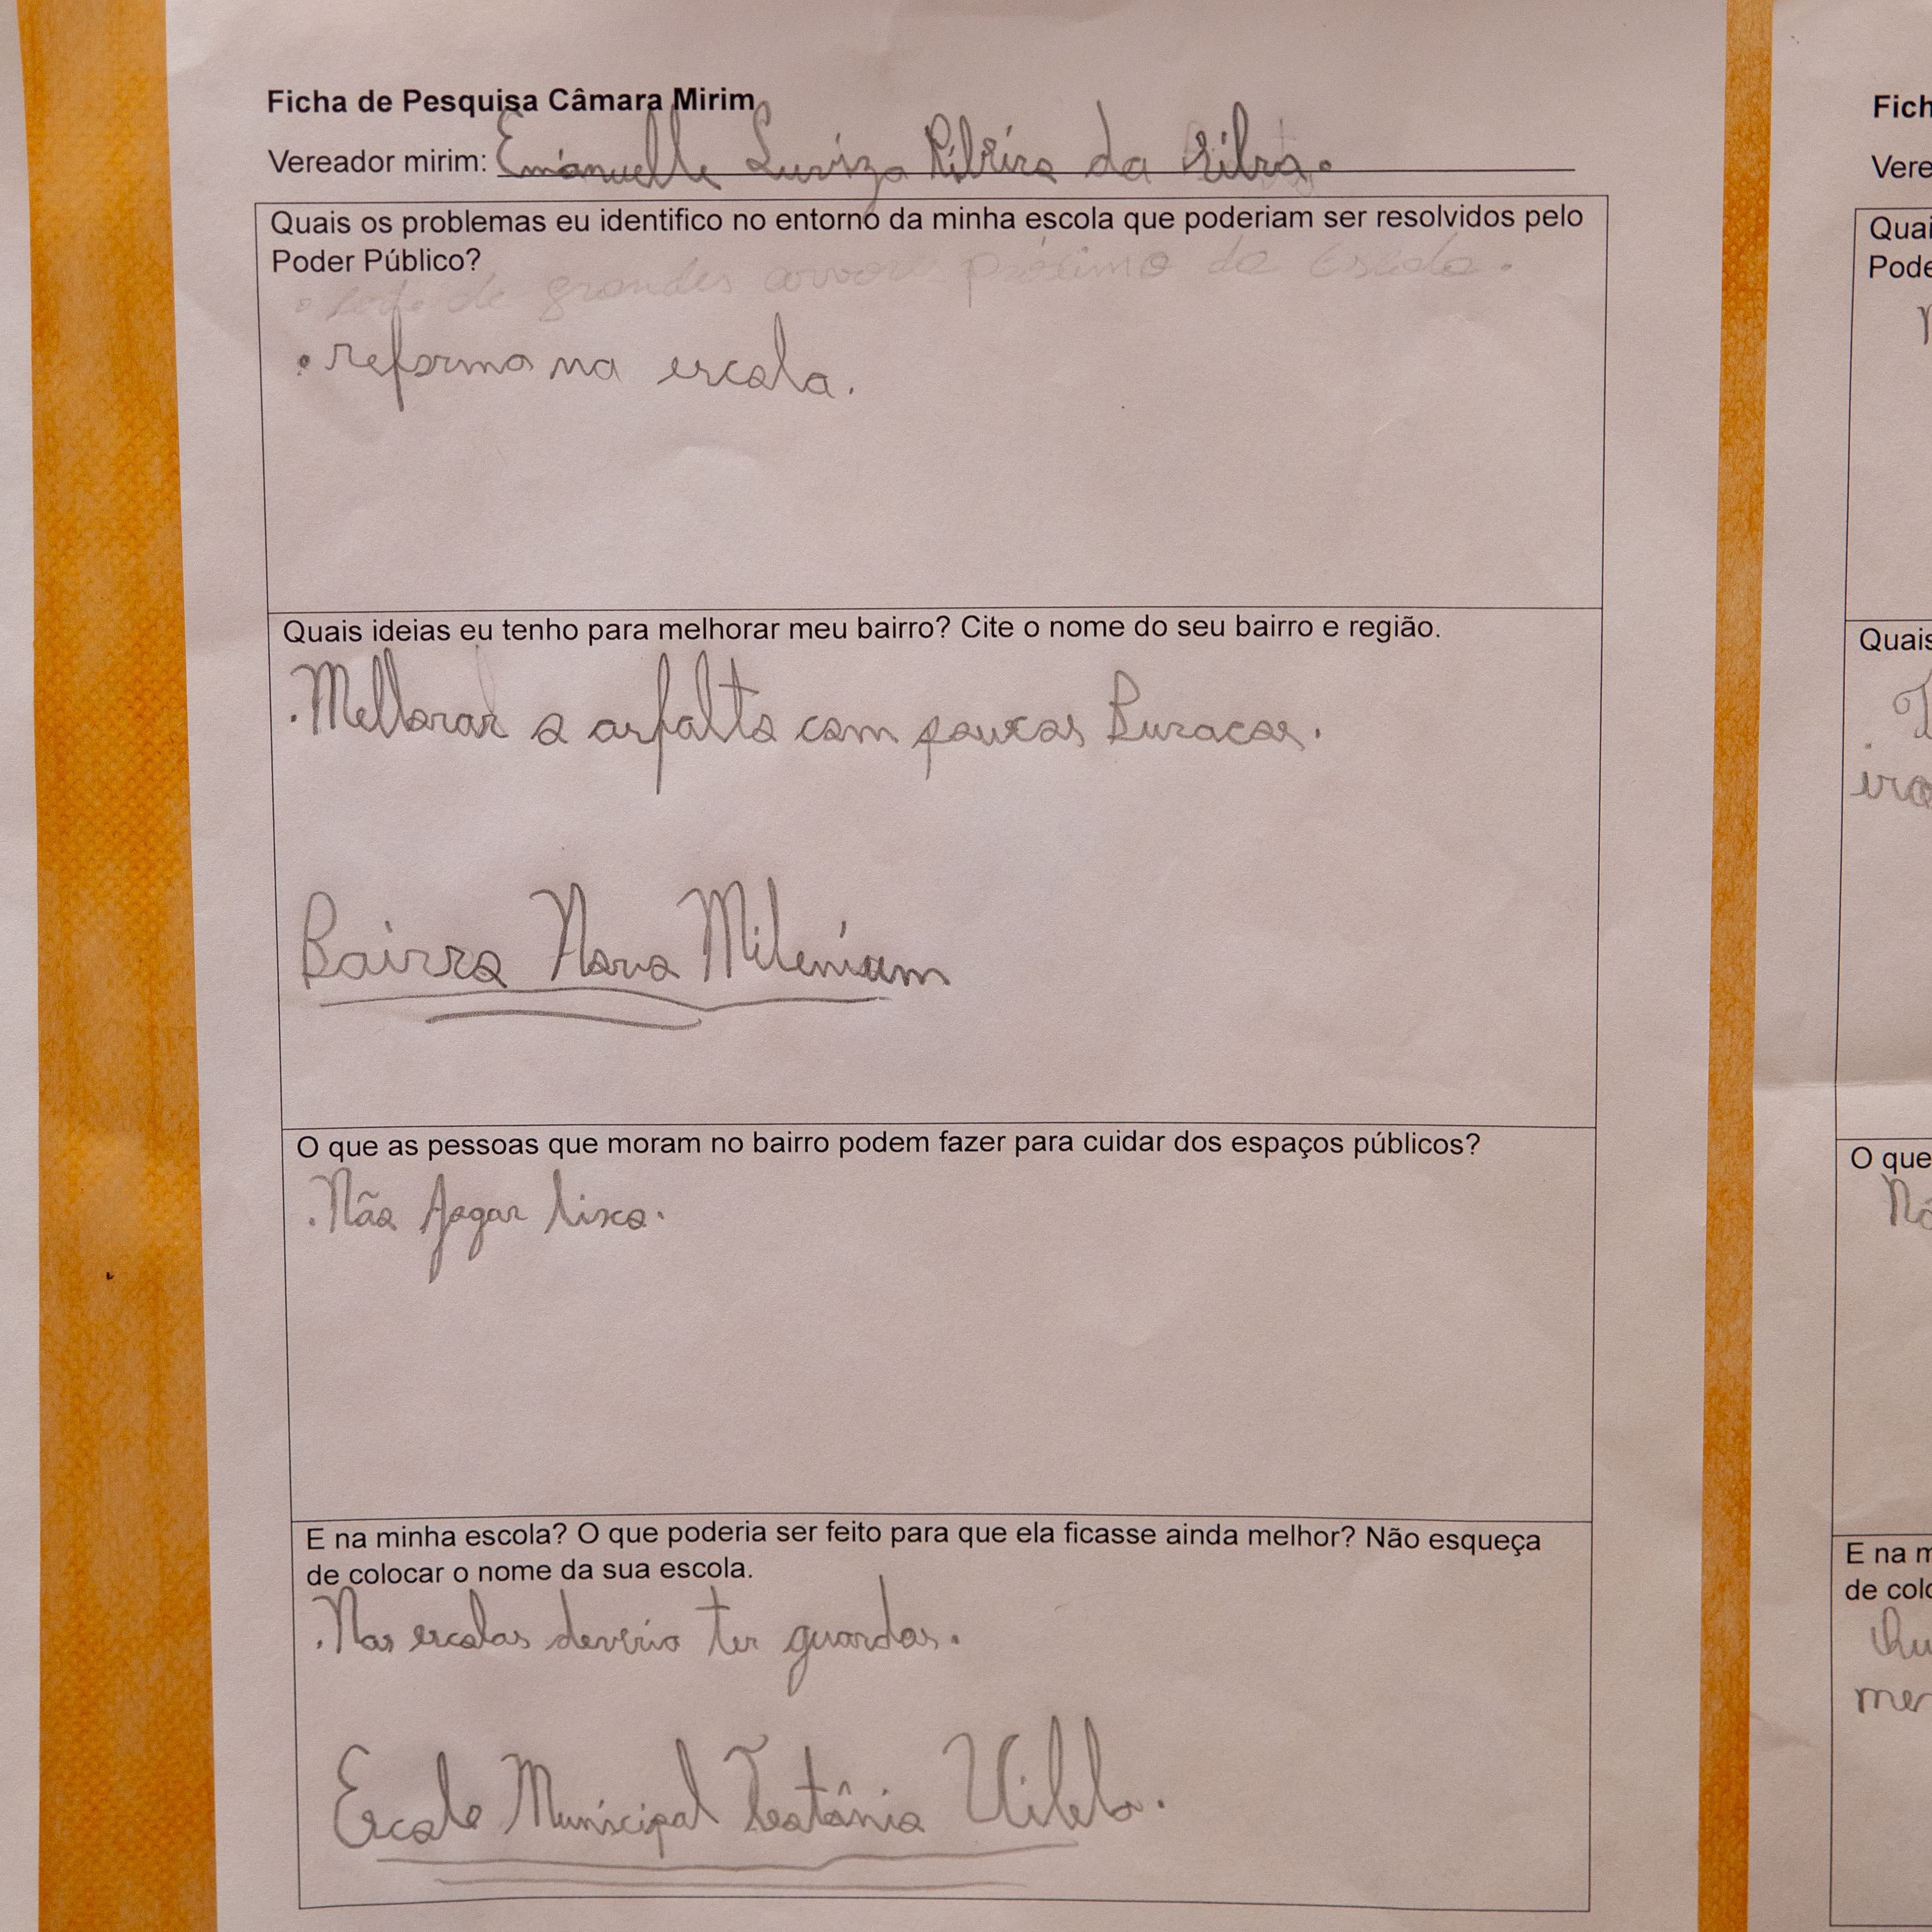 Ficha de Pesquisa Câmara Mirim
Vereador mirim: Emanuelle Luviza Ribeiro da Silva.
Quais os problemas eu identifico no entorno da minha escola que poderiam ser resolvidos pelo
Poder Público?
de grandes arvore próximo da Escola.
• reforma na escola.
Quais ideias eu tenho para melhorar meu bairro? Cite o nome do seu bairro e região.
. Mellorar o asfalto com poucos Buracos.
Bairro Novo Milenium
O que as pessoas que moram no bairro podem fazer para cuidar dos espaços públicos?
. Não Jogar lixo.
E na minha escola? O que poderia ser feito para que ela ficasse ainda melhor? Não esqueça
de colocar o nome da sua escola.
. Nas escolas deveria ter guardas.
Escola Municipal Teotônio Vilela.
Fich
Vere
Quai
Pode
Quais
O que
Nã
E na m
de colo